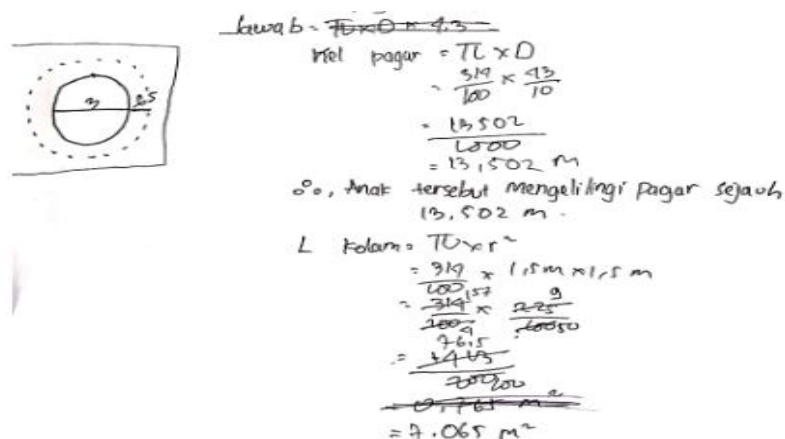 Jawab = π x D x 4.3
Kel pagar = π x D
= 314/100 x 43/10
= 13502/1000
= 13,502 m
∴, Anak tersebut mengelilingi pagar sejauh
13,502 m.
L kolam = π x r²
= 314/100 x 1,5 m x 1,5 m
= 314/100 x 225/100
= 7.065 m²
3